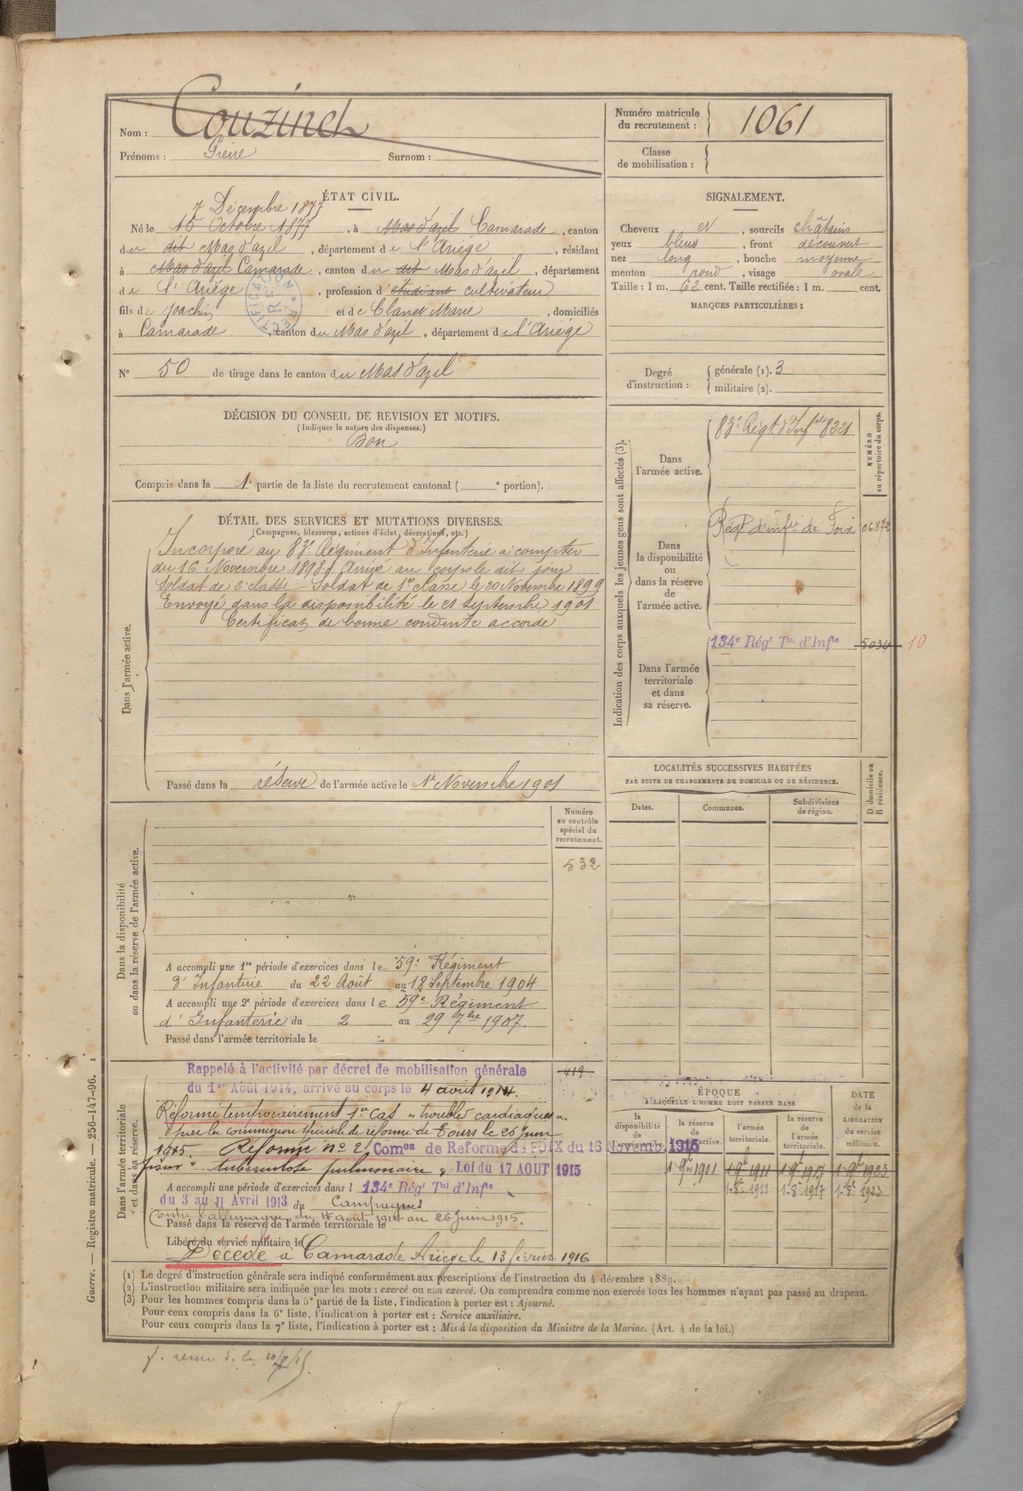 Nom : Couzinet
Prénoms : Pierre Surnom :
Numéro matricule du recrutement : 1061
Classe de mobilisation :
ÉTAT CIVIL.
7 Décembre 1877
Né le 15 Octobre 1877, à Mas d'azil Camarade, canton
du dit Mas d'azil, département de l'Ariège, résidant
à Mas d'azil Camarade, canton du dit Mas d'azil, département
de l'Ariège, profession d'étudiant cultivateur
fils de Joachim et de Clanet Marie, domiciliés
à Camarade, canton du Mas d'azil, département de l'Ariège
RECTIFICATION
N° 50 de tirage dans le canton du Mas d'azil
DÉCISION DU CONSEIL DE REVISION ET MOTIFS.
(Indiquer la nature des dispenses.)
Bon
Compris dans la 1e partie de la liste du recrutement cantonal ( e portion).
SIGNALEMENT.
Cheveux et, sourcils châtains
yeux bleus, front découvert
nez long, bouche moyenne
menton rond, visage ovale
Taille : 1 m. 62 cent. Taille rectifiée : 1 m. cent.
MARQUES PARTICULIÈRES :
Degré d'instruction : générale (1). 3
militaire (2).
DÉTAIL DES SERVICES ET MUTATIONS DIVERSES.
(Campagnes, blessures, actions d'éclat, décorations, etc.)
Dans l'armée active.
Incorporé au 83e Régiment d'Infanterie à compter
du 16 Novembre 1898. Arrivé au corps le dit jour
Soldat de 2e classe Soldat de 1re classe le 20 Novembre 1899
Envoyé dans la disponibilité le 21 Septembre 1901
Certificat de bonne conduite accordé
Passé dans la réserve de l'armée active le 1er Novembre 1901
Indication des corps auxquels les jeunes gens sont affectés (3).
NUMÉRO au répertoire du corps.
Dans l'armée active. 83e Régt d'Infie 8321
Dans la disponibilité ou dans la réserve de l'armée active. Régt d'infie de Foix 06872
Dans l'armée territoriale et dans sa réserve. 134e Régt Tal d'Infie 5034 10
LOCALITÉS SUCCESSIVES HABITÉES
PAR SUITE DE CHANGEMENTS DE DOMICILE OU DE RÉSIDENCE.
Dates. Communes. Subdivisions de région. D domicile ou R résidence.
Dans la disponibilité ou dans la réserve de l'armée active.
Numéro au contrôle spécial du recrutement.
532
A accompli une 1re période d'exercices dans le 59e Régiment
d'Infanterie du 22 Août au 18 Septembre 1904
A accompli une 2e période d'exercices dans le 59e Régiment
d'Infanterie du 2 au 29 7bre 1907.
Passé dans l'armée territoriale le
Dans l'armée territoriale et dans sa réserve.
Rappelé à l'activité par décret de mobilisation générale
du 1er Août 1914, arrivé au corps le 4 août 1914
419
Réformé temporairement 1er cas "troubles cardiaques"
par la commission spéciale de réforme de Tours le 25 Juin
1915. Réformé n° 2 Comon de Réforme de FOIX du 16 Novemb. 1915
pour tuberculose pulmonaire Loi du 17 AOUT 1915
A accompli une période d'exercices dans l 134e Régt Tal d'Infie
du 3 au 11 Avril 1913 du Campagnes
Contre l'allemagne du 4 août 1914 au 26 Juin 1915.
Passé dans la réserve de l'armée territoriale le
Libéré du service militaire le
Décédé à Camarade Ariège le 13 février 1916
ÉPOQUE
A LAQUELLE L'HOMME DOIT PASSER DANS
la disponibilité de l'armée active. la réserve de l'armée active. l'armée territoriale. la réserve de l'armée territoriale. DATE de la LIBÉRATION du service militaire.
1-9bre 1901 1-9bre 1911 1-9bre 1917 1-9bre 1923
1-8e 1911 1-8e 1917 1-8e 1923
(1) Le degré d'instruction générale sera indiqué conformément aux prescriptions de l'instruction du 4 décembre 1889.
(2) L'instruction militaire sera indiquée par les mots : exercé ou non exercé. On comprendra comme non exercés tous les hommes n'ayant pas passé au drapeau.
(3) Pour les hommes compris dans la 5e partie de la liste, l'indication à porter est : Ajourné.
Pour ceux compris dans la 6e liste, l'indication à porter est : Service auxiliaire.
Pour ceux compris dans la 7e liste, l'indication à porter est : Mis à la disposition du Ministre de la Marine. (Art. 4 de la loi.)
Guerre. — Registre matricule. — 256-147-96.